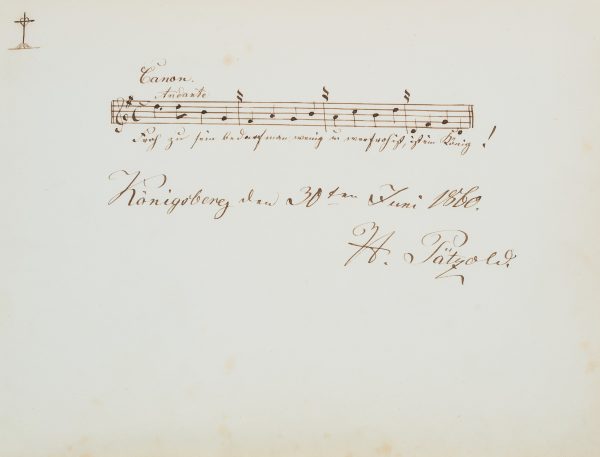 Canon.
Andante
Froh zu sein bedarf man wenig u wer froh ist, ist ein König!
Königsberg den 30ten Juni 1860.
H. Pätzold.